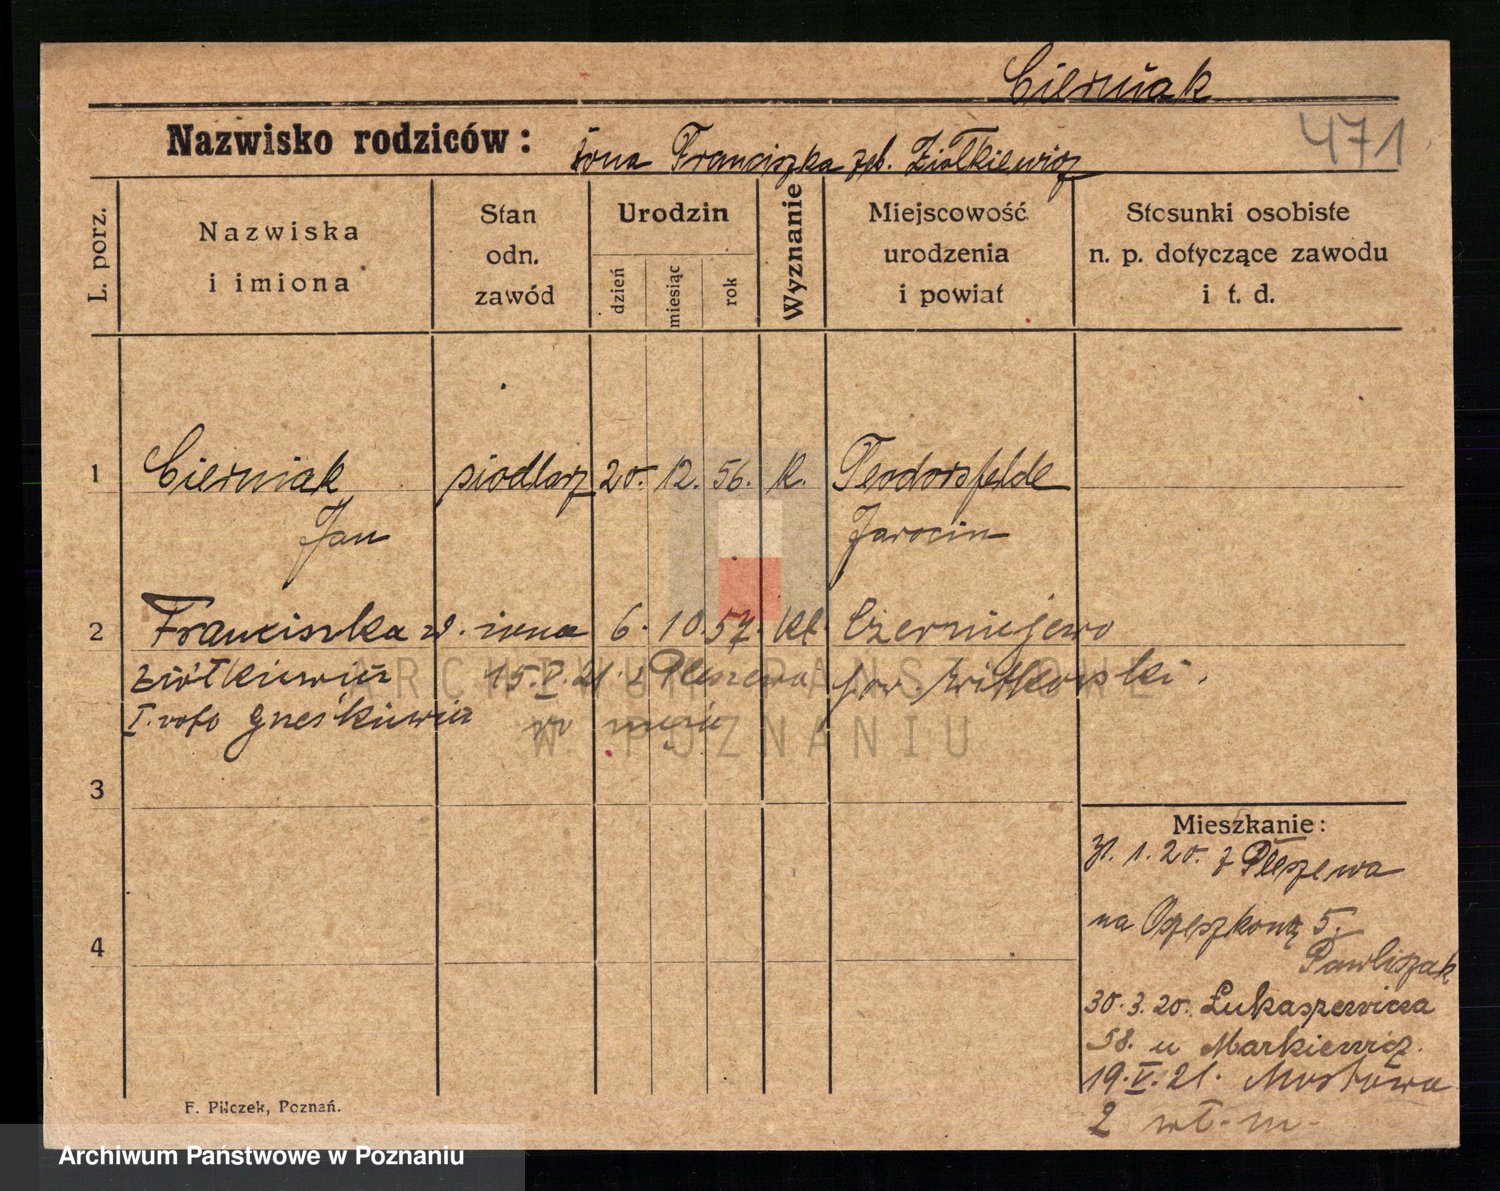 Cierniak
471
Nazwisko rodziców: żona Franciszka geb. Ziółkiewicz
L. porz.
Nazwiska
i imiona
Stan
odn.
zawód
Urodzin
dzień
miesiąc
rok
Wyznanie
Miejscowość
urodzenia
i powiat
Stosunki osobiste
n. p. dotyczące zawodu
i t. d.
1 Cierniak siodlarz 20. 12. 56. k. Teodorsfelde
Jan Jarocin
2 Franciszka z d. żona 6. 10. 57. kt. Czerniejewo
Ziółkiewicz 15.V.21. z Pleszewa pow. Witkowski.
I. voto
3
4
Mieszkanie:
31. 1. 20. z Pleszewa
na 5.
Pawliszak
30. 3. 20. Łukaszewicza
58. u Markiewicz.
19.V.21. Mostowa
2 wł. m.
F. Pilczek, Poznań.
ARCHIWUM PAŃSTWOWE
W POZNANIU
Archiwum Państwowe w Poznaniu